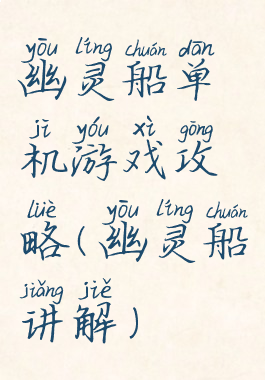 yōu líng chuán dān
幽灵船单
jī yóu xì gōng
机游戏攻
lüè yōu líng chuán
略(幽灵船
jiǎng jiě
讲解)